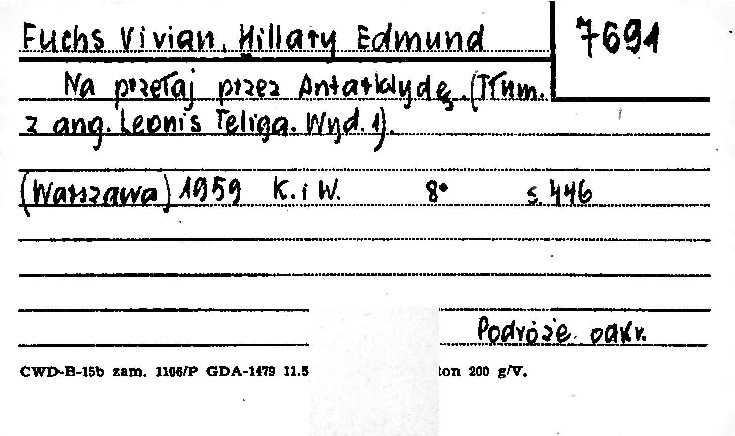 Fuchs Vivian, Hillary Edmund
7691
Na przełaj przez Antarktydę. (Tłum.
z ang. Leonis Teliga. Wyd. 1).
(Warszawa) 1959 K. i W. 8° s. 446
Podróże. odkr.
CWD-B-15b zam. 1106/P GDA-1479 11.5 ton 200 g/V.